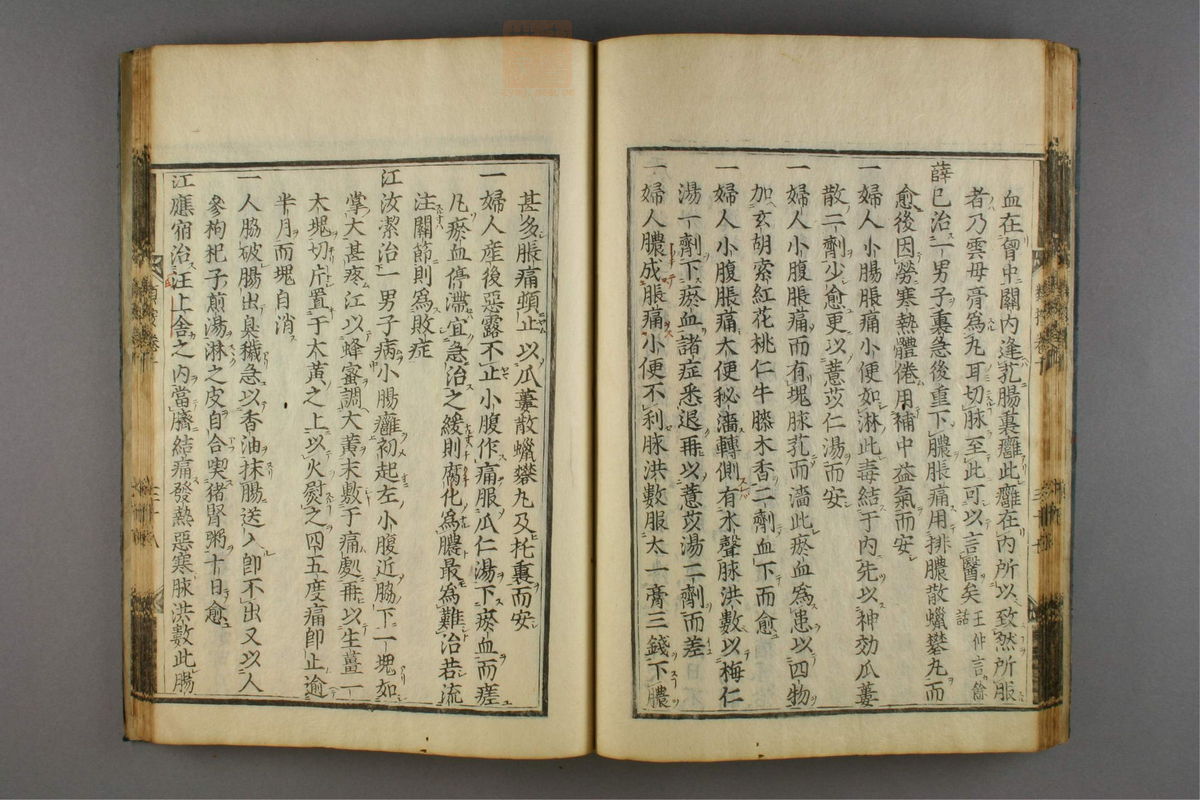 血在胷中關内逢芤腸裏癰此癰在内所以致然所服
者乃雲母膏爲丸耳切脉至此可以言醫矣 王仲言餘話
薛巳治一男子裏急後重下膿脹痛用排膿散蠟礬丸而
愈後因勞寒熱體倦用補中益氣而安
一 婦人小腸脹痛小便如淋此毒結于内先以神効瓜蔞
散二劑少愈更以薏苡仁湯而安
一 婦人小腹脹痛而有塊脉芤而濇此瘀血爲患以四物
加玄胡索紅花桃仁牛膝木香二劑血下而愈
一 婦人小腹脹痛大便秘濇轉側有水聲脉洪數以梅仁
湯一劑下瘀血諸症悉退再以薏苡湯二劑而差
一 婦人膿成脹痛小便不利脉洪數服太一膏三錢下膿
甚多脹痛頓止以瓜蔞散蠟礬丸及托裏而安
一 婦人産後惡露不止小腹作痛服瓜仁湯下瘀血而瘥
凡瘀血停滯宜急治之緩則腐化爲膿最爲難治若流
注關節則爲敗症
江汝潔治一男子病小腸癰初起左小腹近脇下一塊如
掌大甚疼江以蜂蜜調大黄末敷于痛處再以生薑一
大塊切片置于太黄之上以火熨之四五度痛即止逾
半月而塊自消
一 人脇破腸出臭穢急以香油抹腸送入即不出又以人
參枸杞子煎湯淋之皮自合喫猪腎粥十日愈
江應宿治汪上舍之内當臍結痛發熱惡寒脉洪數此腸